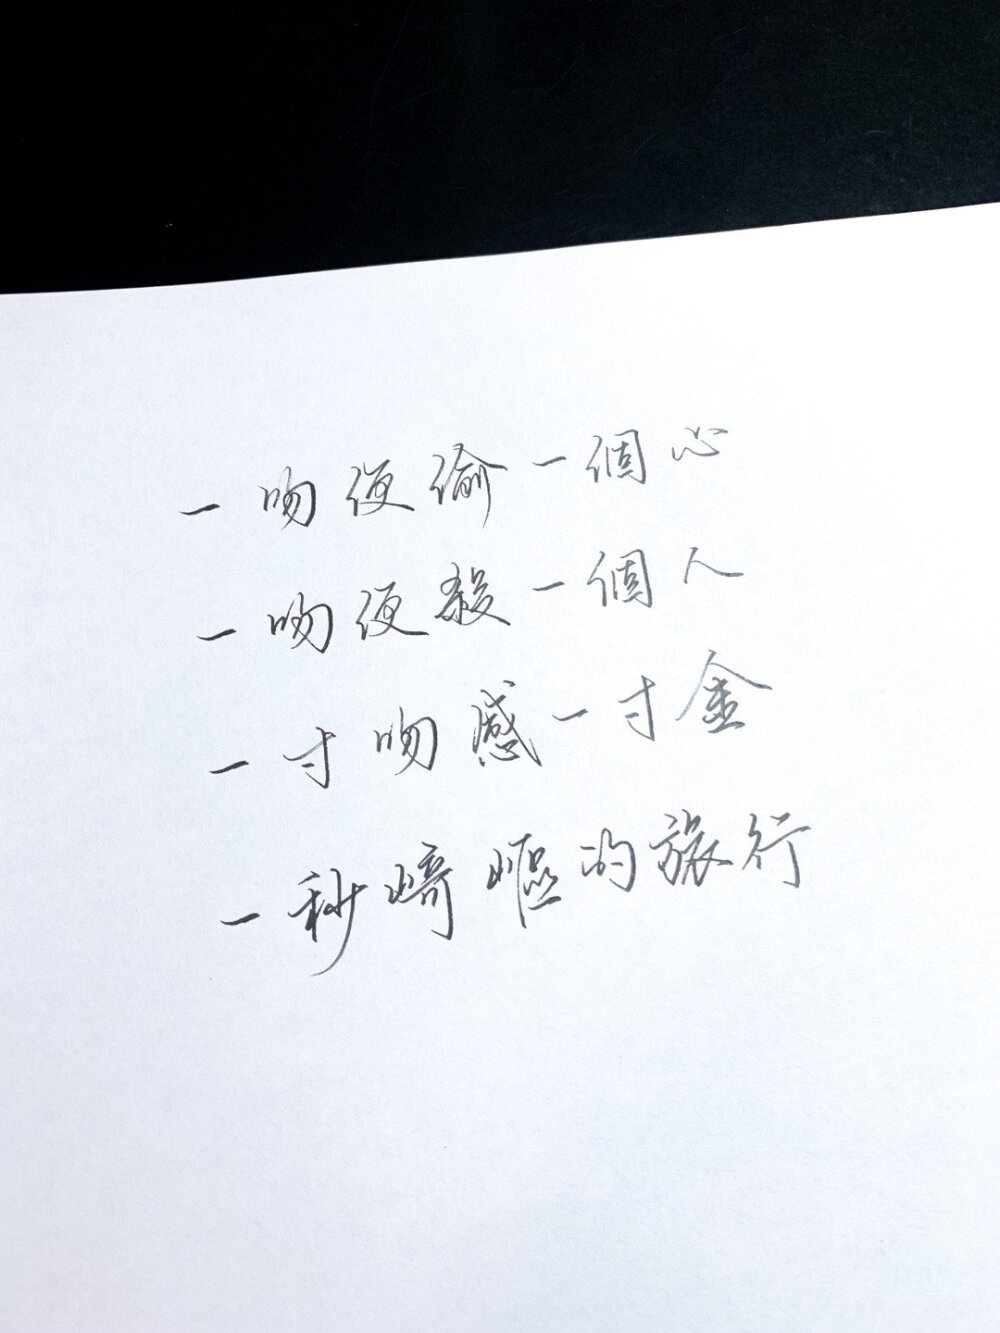 一吻便偷一個心
一吻便殺一個人
一寸吻感一寸金
一秒崎嶇的旅行